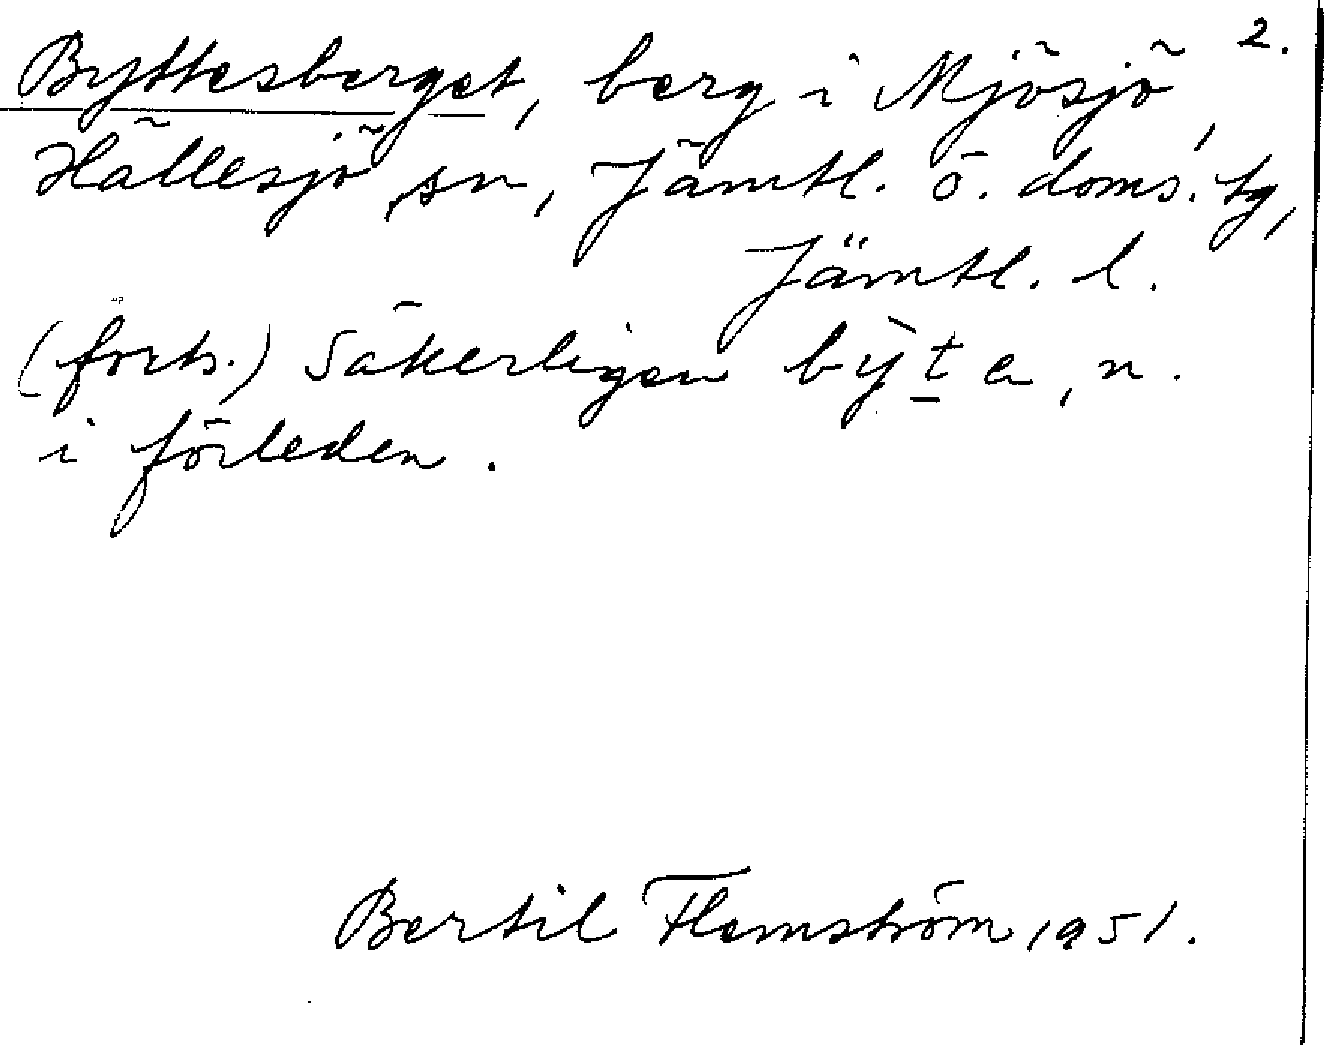 2.
Byttesberget, berg i Mjösjö,
Hällesjö sn, Jämtl. ö. doms. tg,
Jämtl. l.
(forts.) Säkerligen by̆te, n.
i förleden.
Bertil Flemström 1951.